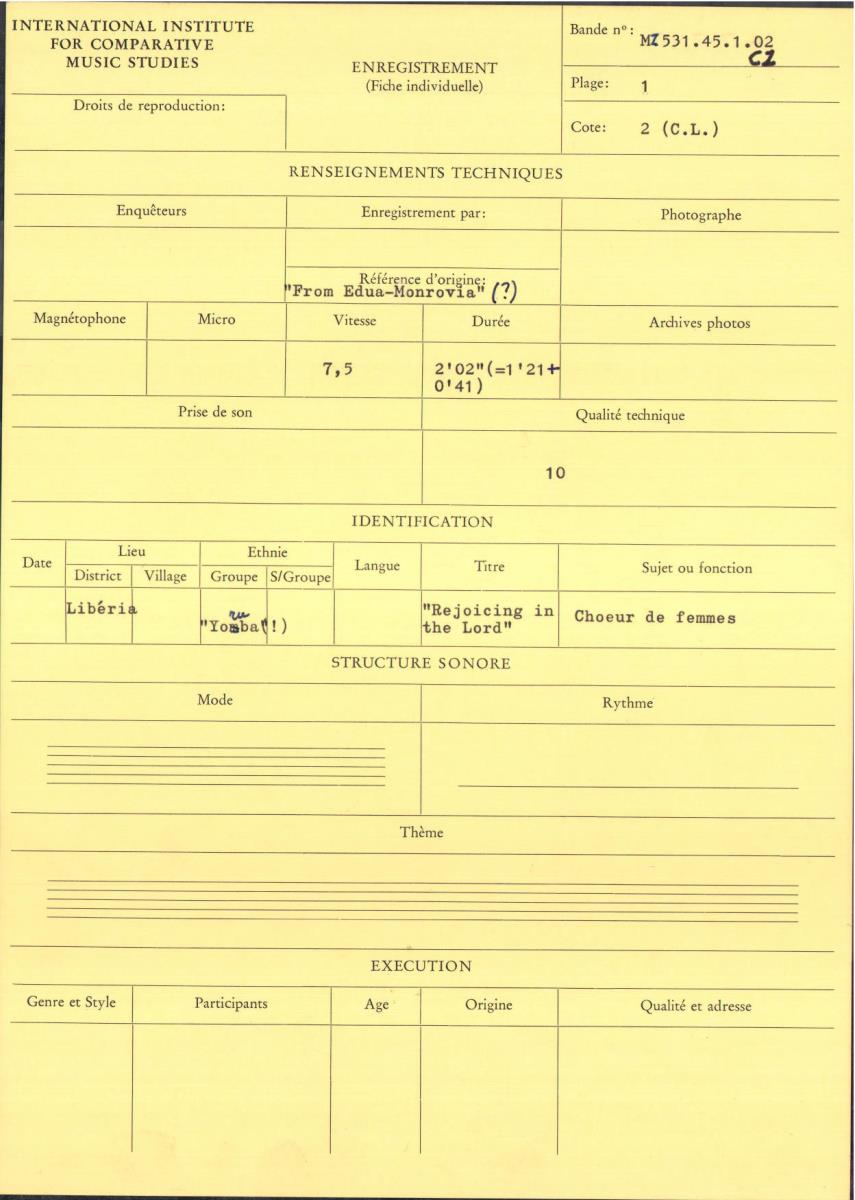 INTERNATIONAL INSTITUTE
FOR COMPARATIVE
MUSIC STUDIES
Droits de reproduction:
ENREGISTREMENT
(Fiche individuelle)
Bande nº: MZ531.45.1.02
C1
Plage: 1
Cote: 2 (C.L.)
RENSEIGNEMENTS TECHNIQUES
Enquêteurs
Enregistrement par:
Photographe
Référence d'origine:
"From Edua-Monrovia" (?)
Magnétophone
Micro
Vitesse
Durée
Archives photos
7,5
2'02"(=1'21+
0'41)
Prise de son
Qualité technique
10
IDENTIFICATION
Date
Lieu
Ethnie
Langue
Titre
Sujet ou fonction
District
Village
Groupe
S/Groupe
Libéria
ru
"Yomba(!)
"Rejoicing in
the Lord"
Choeur de femmes
STRUCTURE SONORE
Mode
Rythme
Thème
EXECUTION
Genre et Style
Participants
Age
Origine
Qualité et adresse